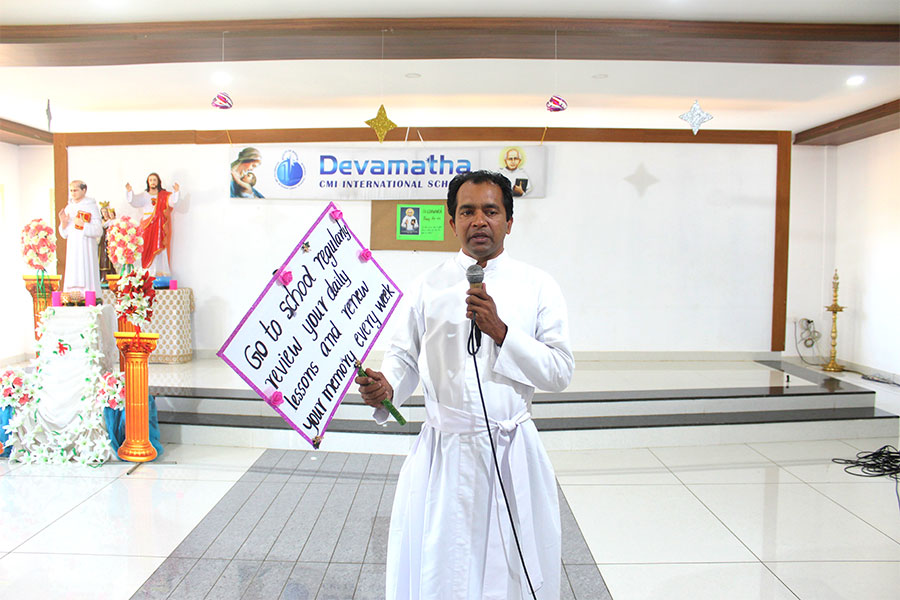 Devamatha
CMI INTERNATIONAL
Go to school regularly
review your daily
lessons and renew
your memory every week